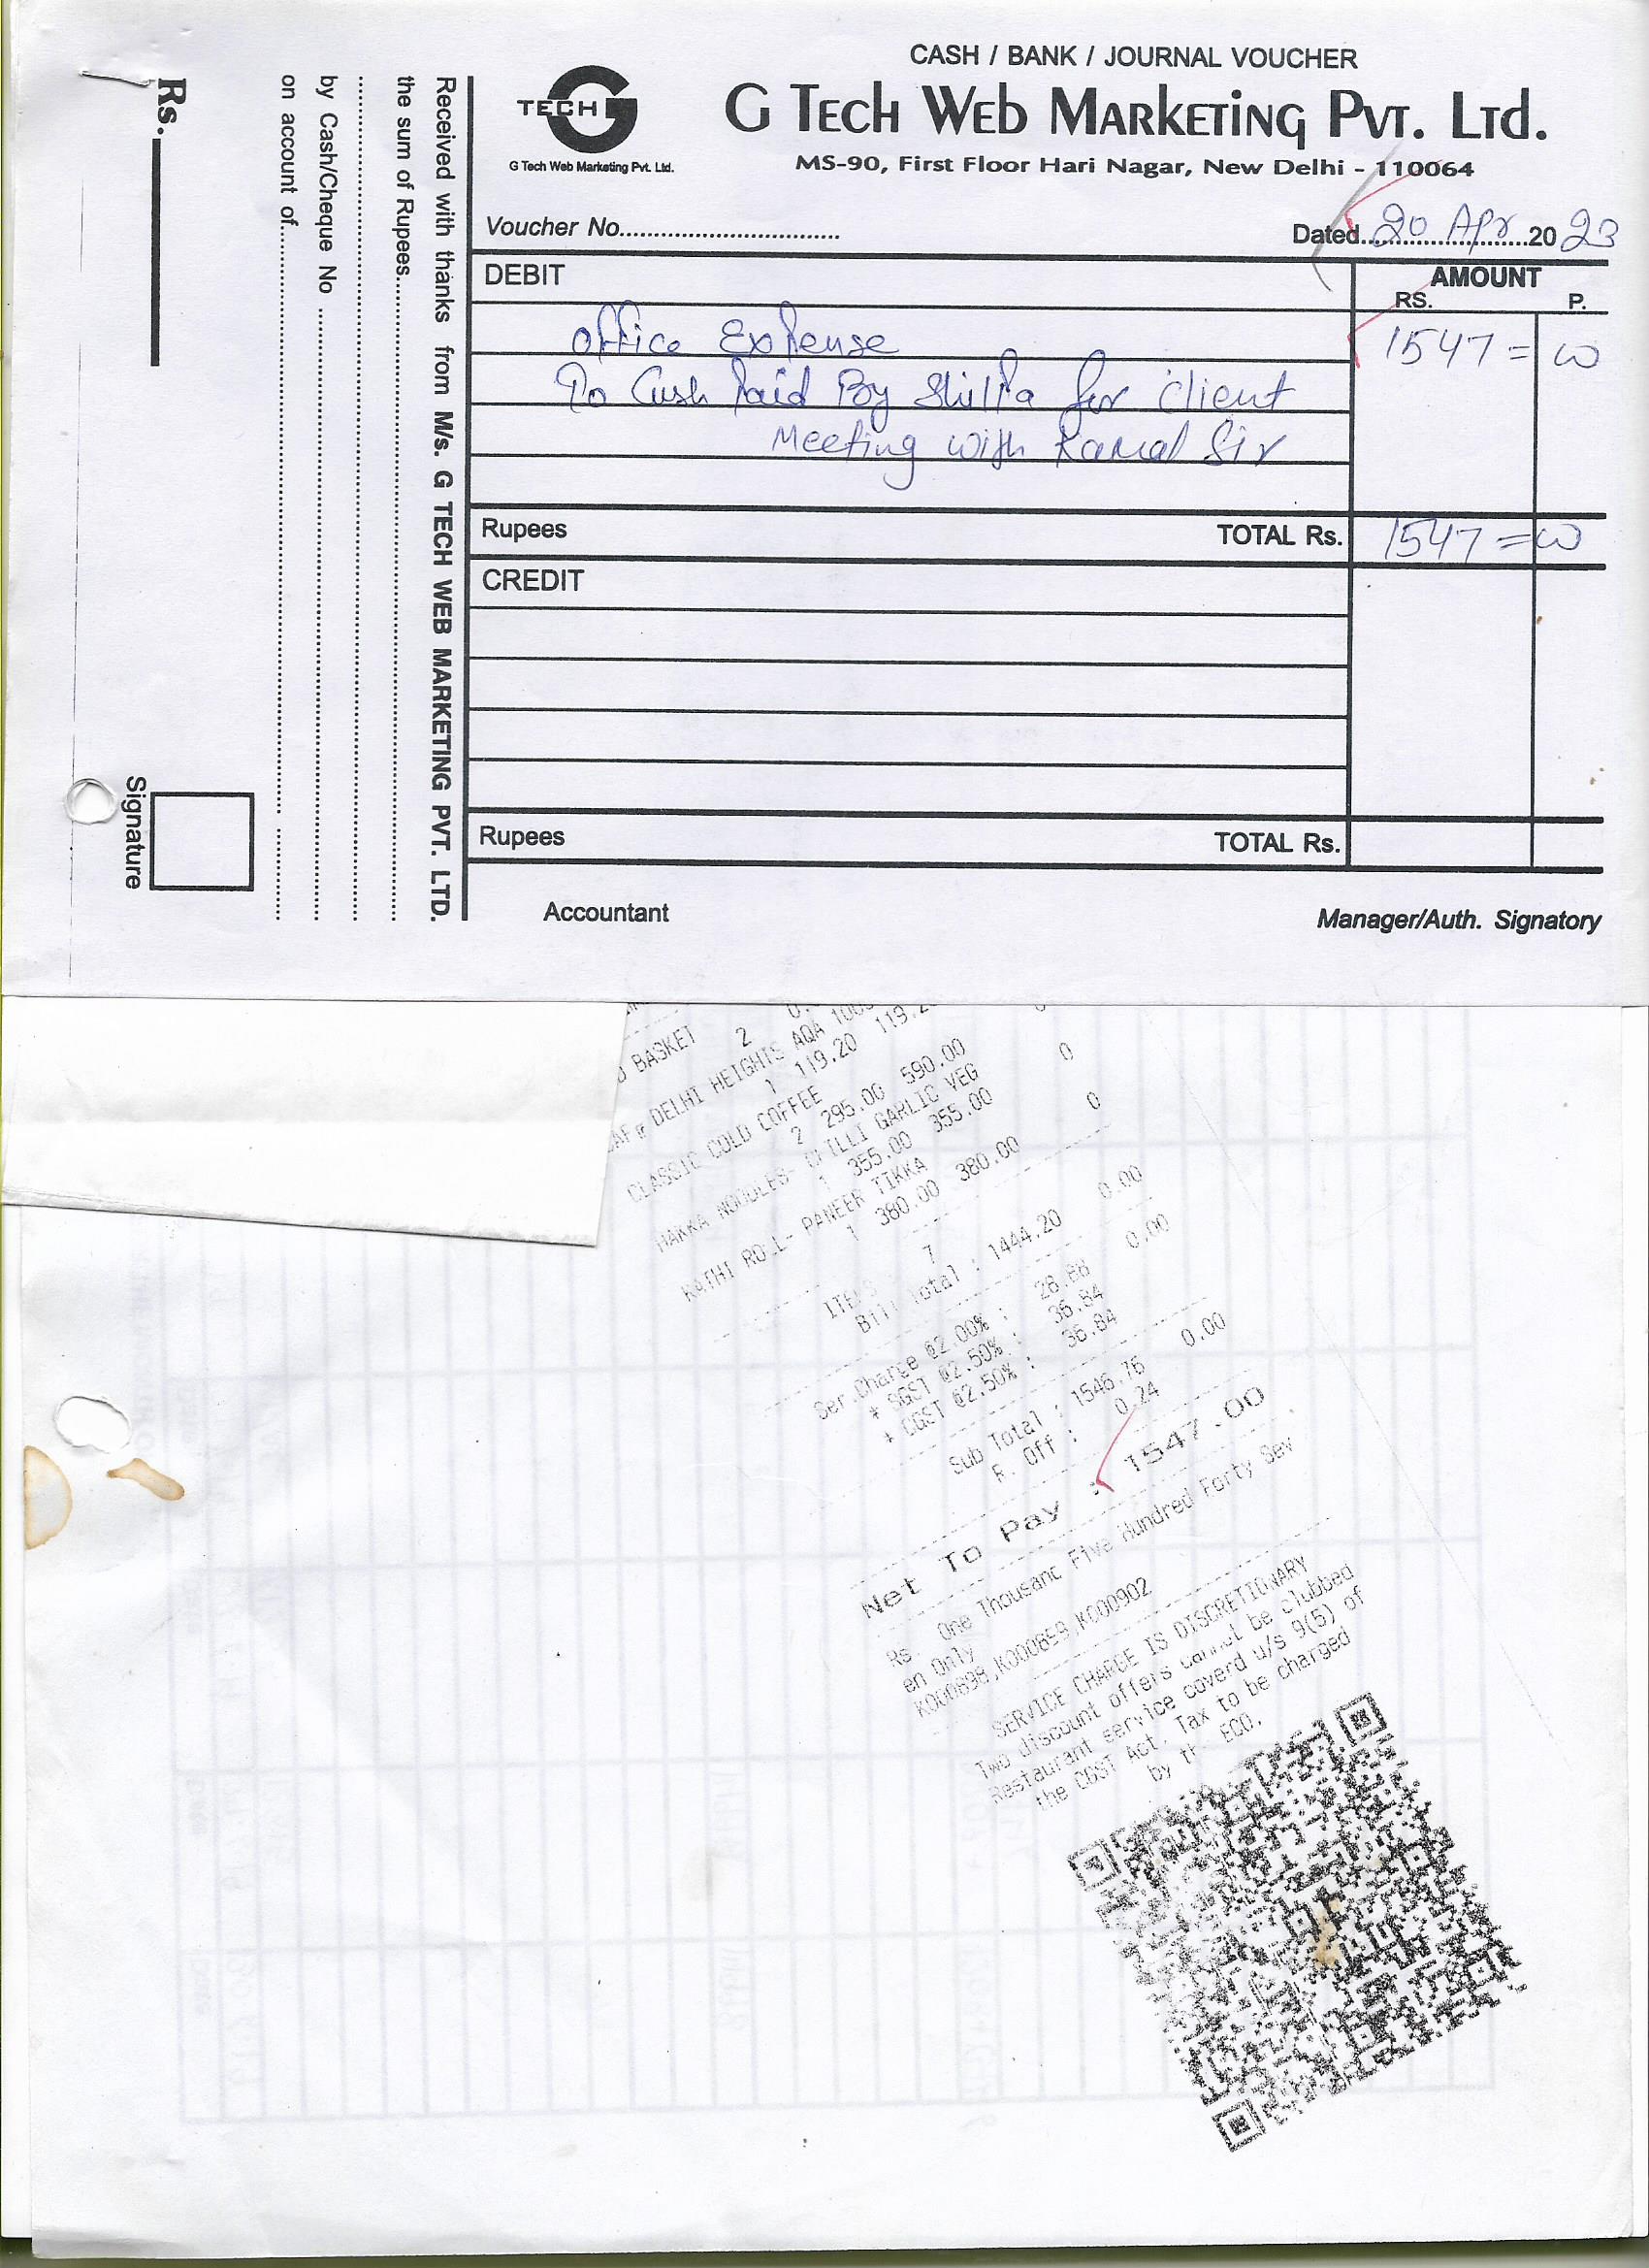 CASH / BANK / JOURNAL VOUCHER
TECH G
G Tech Web Marketing Pvt. Ltd.
G Tech Web Marketing Pvt. Ltd.
MS-90, First Floor Hari Nagar, New Delhi - 110064
Voucher No.
Dated 20 Apr 2023
DEBIT
AMOUNT
RS. P.
Office Expense 1547 = 00
To Cash Paid By Shilpa for Client
Meeting with Kamal Sir
Rupees TOTAL Rs. 1547 = 00
CREDIT
Rupees TOTAL Rs.
Accountant Manager/Auth. Signatory
Received with thanks from M/s. G TECH WEB MARKETING PVT. LTD.
the sum of Rupees
by Cash/Cheque No
on account of
Rs.
Signature
BASKET 2
DELHI HEIGHTS AQA
1 119.20
CLASSIC COLD COFFEE
2 295.00 590.00 0
HAKKA NOODLES- CHILLI GARLIC VEG
1 355.00 355.00 0
KATHI ROLL- PANEER TIKKA
1 380.00 380.00 0
ITEMS 7
Bill Total : 1444.20 0.00
Ser.Charge @2.00% : 28.88 0.00
+ SGST @2.50% : 36.84
+ CGST @2.50% : 36.84
Sub Total : 1546.76 0.00
R. Off : 0.24
Net To Pay : 1547.00
Rs. One Thousand Five Hundred Forty Sev
en Only
K000898,K000859,K000902
SERVICE CHARGE IS DISCRETIONARY
Two discount offers cannot be clubbed
Restaurant service coverd u/s 9(5) of
the CGST Act. Tax to be charged
by th ECO.